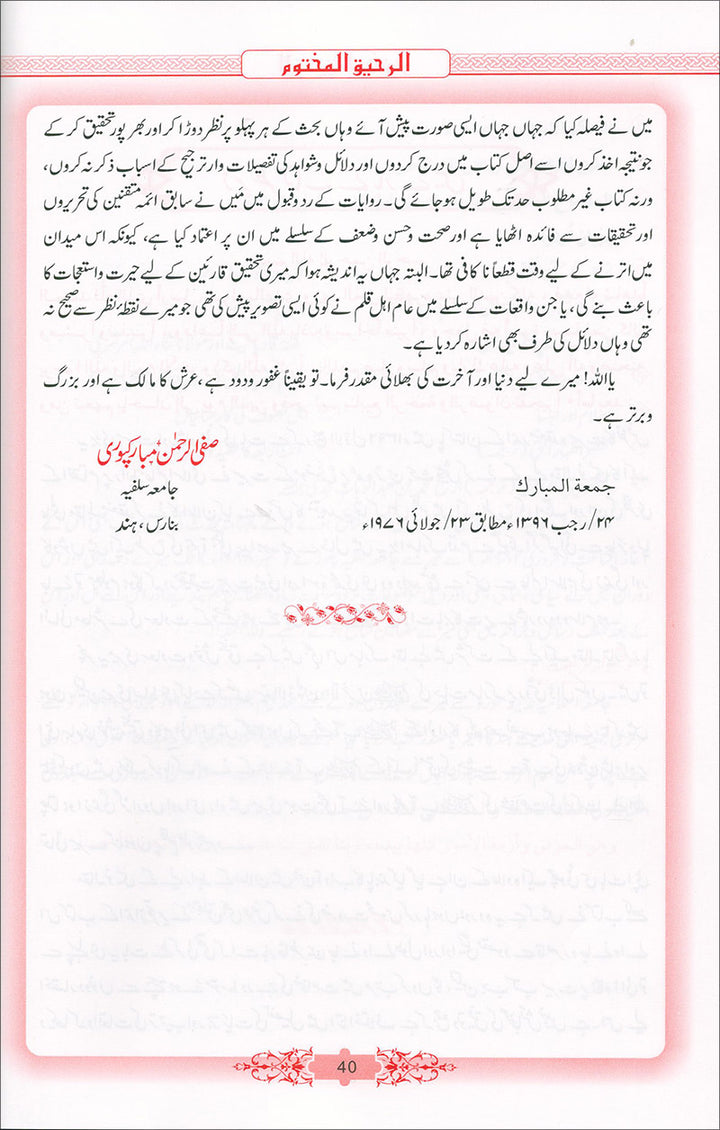 الرحیق المختوم
میں نے فیصلہ کیا کہ جہاں جہاں ایسی صورت پیش آئے وہاں بحث کے ہر پہلو پر نظر دوڑا کر اور بھر پور تحقیق کر کے
جو نتیجہ اخذ کروں اسے اصل کتاب میں درج کردوں اور دلائل و شواہد کی تفصیلات وار ترجیح کے اسباب ذکر نہ کروں،
ورنہ کتاب غیر مطلوب حد تک طویل ہو جائے گی۔ روایات کے رد و قبول میں مَیں نے سابق ائمہ متقنین کی تحریروں
اور تحقیقات سے فائدہ اٹھایا ہے اور صحت و حسن و ضعف کے سلسلے میں ان پر اعتماد کیا ہے، کیونکہ اس میدان
میں اترنے کے لیے وقت قطعاً ناکافی تھا۔ البتہ جہاں یہ اندیشہ ہوا کہ میری تحقیق قارئین کے لیے حیرت و استعجاب کا
باعث بنے گی، یا جن واقعات کے سلسلے میں عام اہل قلم نے کوئی ایسی تصویر پیش کی تھی جو میرے نقطۂ نظر سے صحیح نہ
تھی وہاں دلائل کی طرف بھی اشارہ کر دیا ہے۔
یا اللہ! میرے لیے دنیا اور آخرت کی بھلائی مقدر فرما۔ تو یقیناً غفور و ودود ہے، عرش کا مالک ہے اور بزرگ
و برتر ہے۔
صفی الرحمٰن مبارکپوری
جمعۃ المبارک
جامعہ سلفیہ
۲۴/ رجب ۱۳۹۶ء مطابق ۲۳/ جولائی ۱۹۷۶ء
بنارس، ہند
40